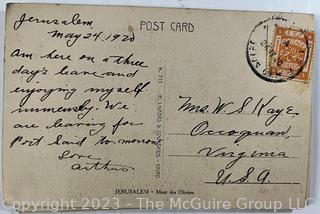 Jerusalem
May 24, 1920
POST CARD
Am here on a three
day's leave and
enjoying myself
immensely. We
are leaving for
Port Said to-morrow
Love
Arthur
Mrs. W. S. Kaye.
Occoquan,
Virginia
U.S.A.
JERUSALEM – Mont des Oliviers
Copyright 2023 - The McGuire Group, LLC